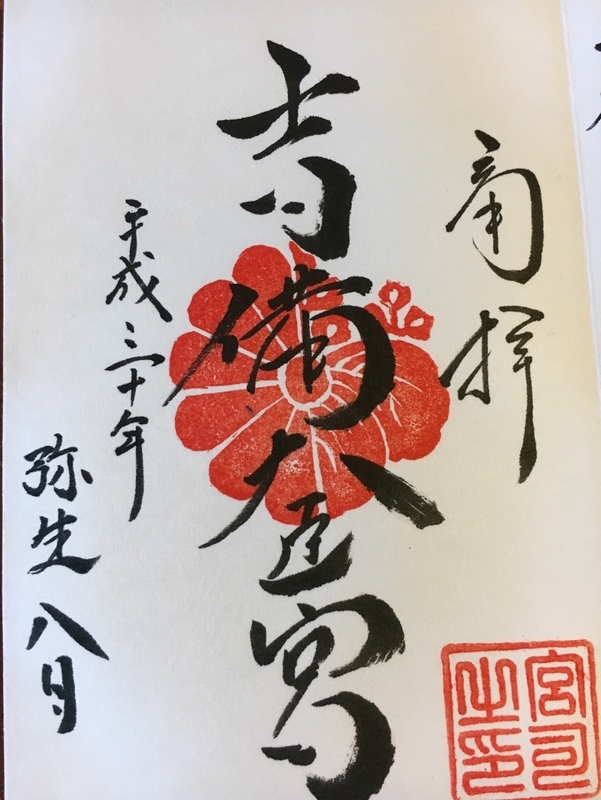 拝
吉備大臣宮
平成三十年
弥生八日
宮司之印